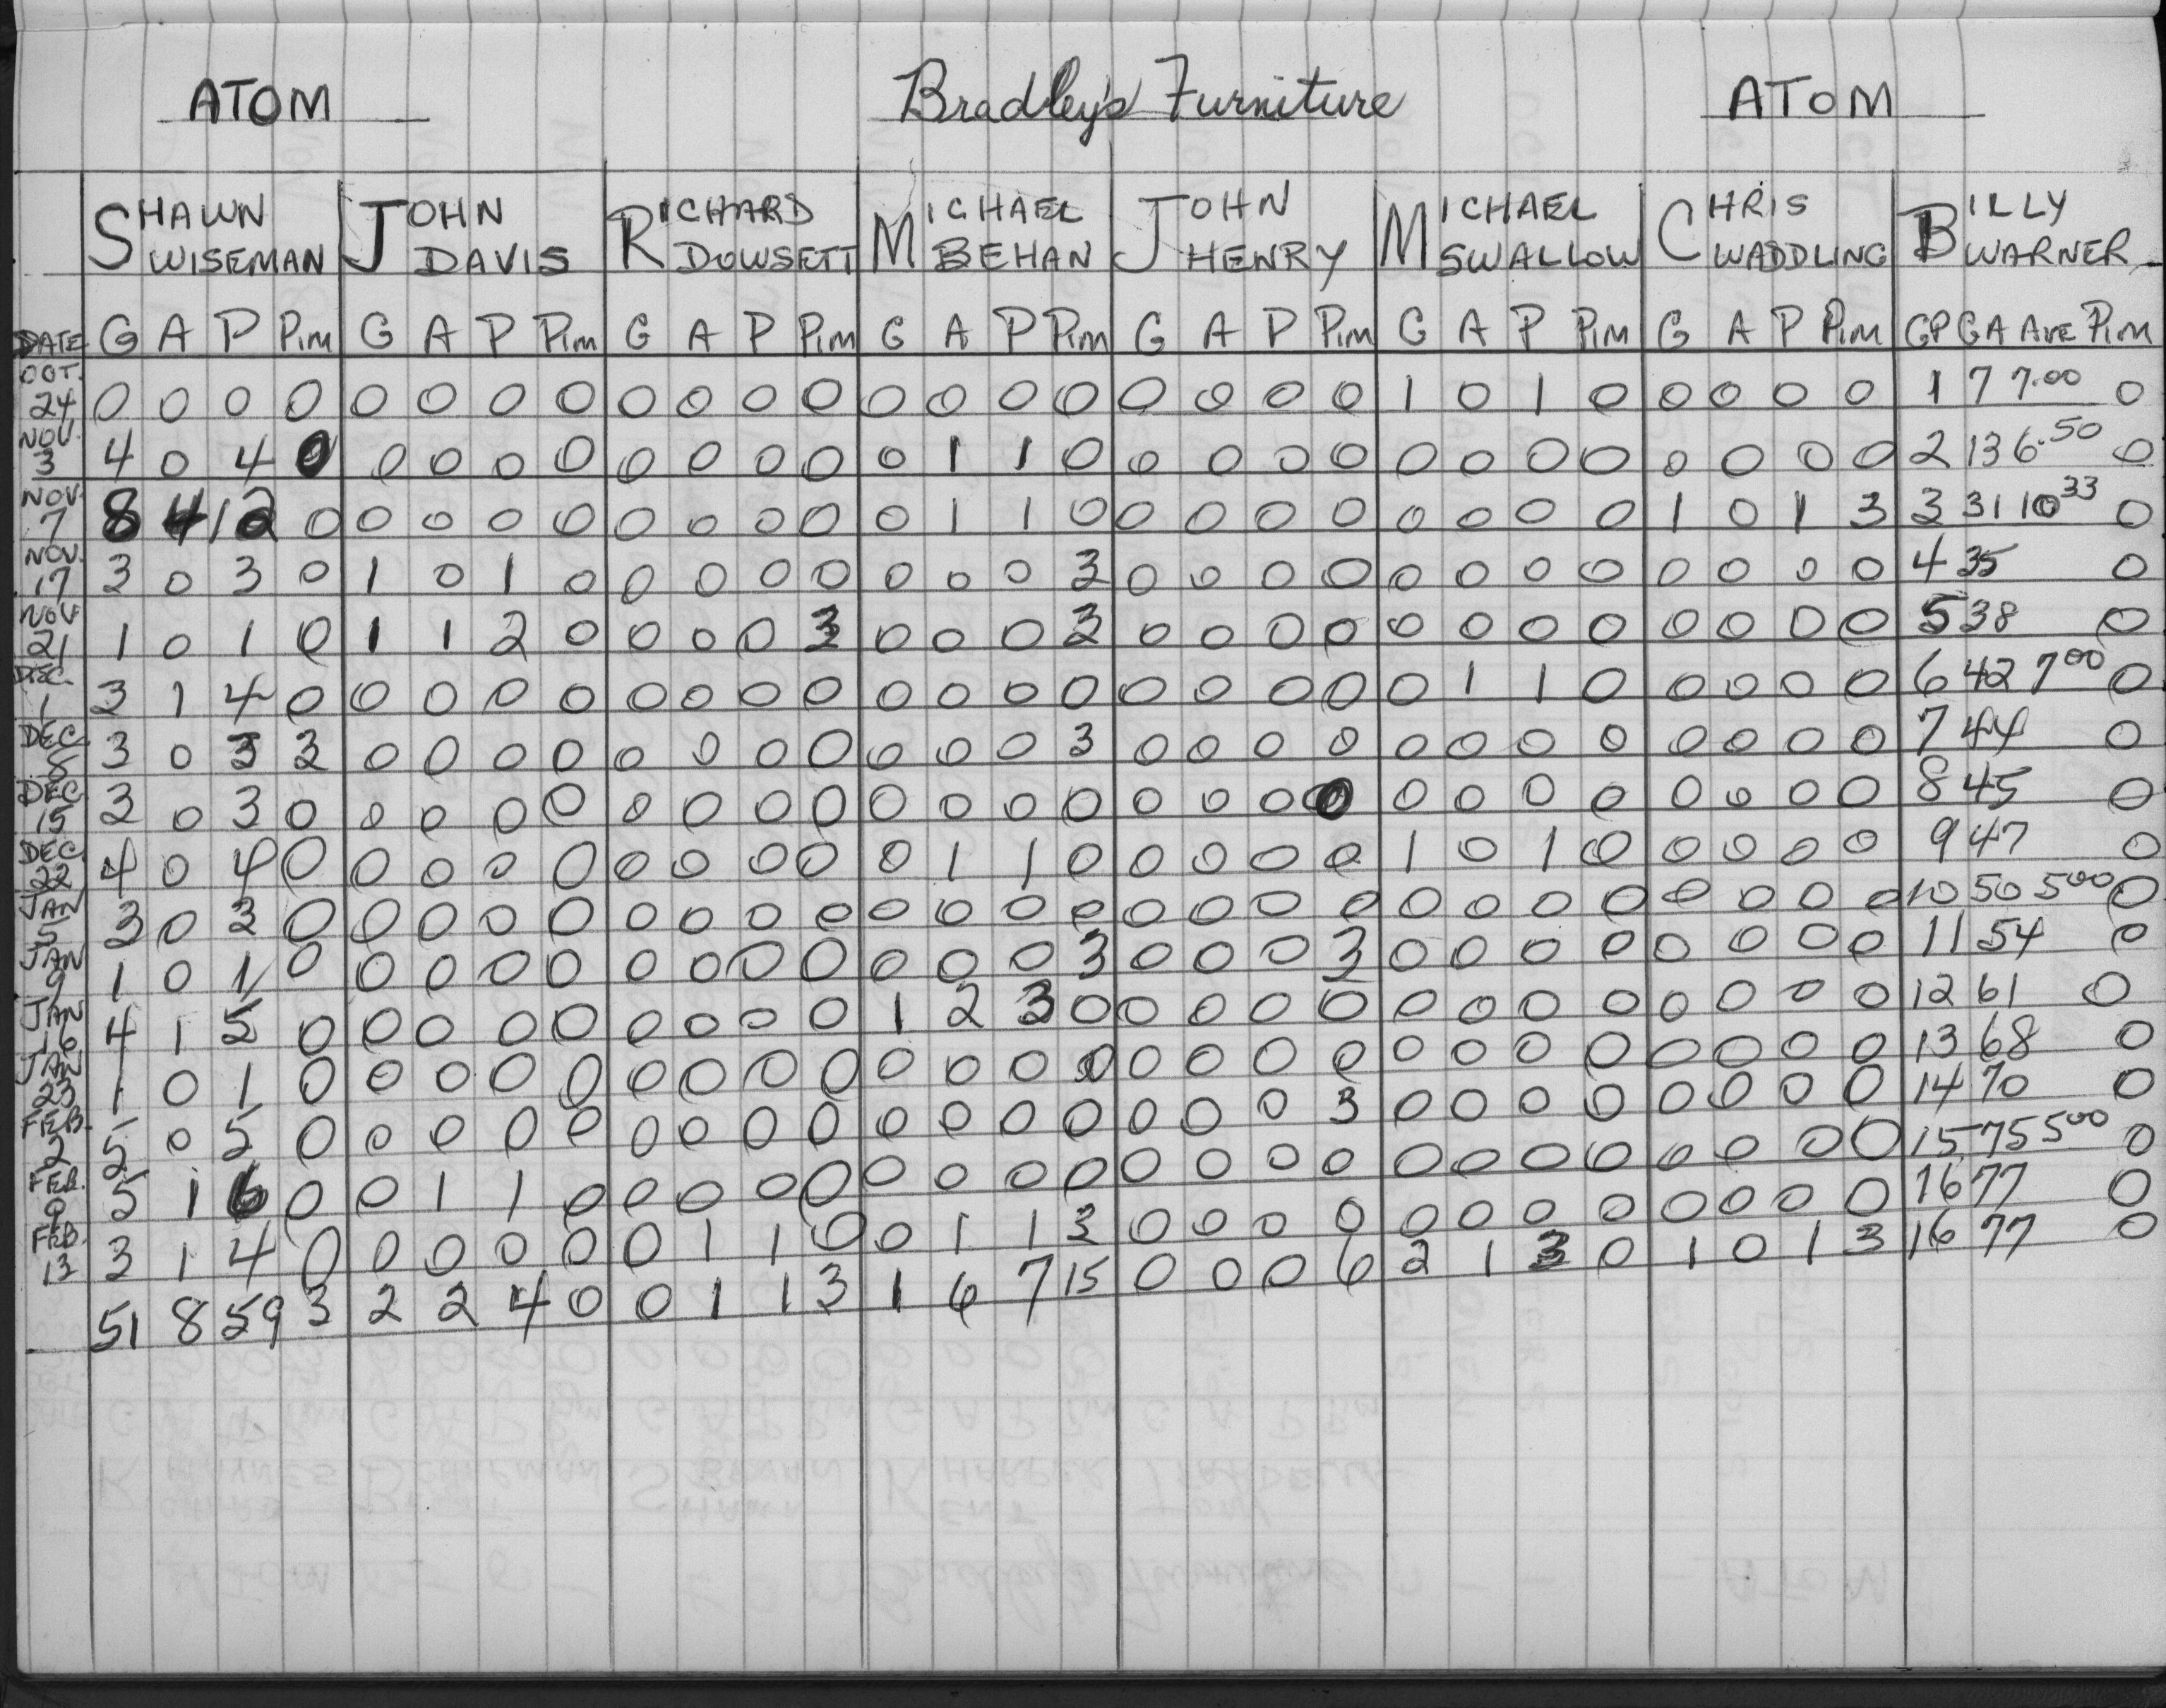 ATOM Bradley's Furniture ATOM
SHAWN WISEMAN JOHN DAVIS RICHARD DOWSETT MICHAEL BEHAN JOHN HENRY MICHAEL SWALLOW CHRIS WADDLING BILLY WARNER
DATE G A P Pim G A P Pim G A P Pim G A P Pim G A P Pim G A P Pim G A P Pim GP GA AVE Pim
OCT. 24 0 0 0 0 0 0 0 0 0 0 0 0 0 0 0 0 0 0 0 0 1 0 1 0 0 0 0 0 1 7 7.00 0
NOV. 3 4 0 4 0 0 0 0 0 0 0 0 0 0 1 1 0 0 0 0 0 0 0 0 0 0 0 0 0 2 13 6.50 0
NOV. 7 8 4 12 0 0 0 0 0 0 0 0 0 0 1 1 0 0 0 0 0 0 0 0 0 1 0 1 3 3 31 10 33 0
NOV. 17 3 0 3 0 1 0 1 0 0 0 0 0 0 0 0 3 0 0 0 0 0 0 0 0 0 0 0 0 4 35 0
NOV 21 1 0 1 0 1 1 2 0 0 0 0 3 0 0 0 3 0 0 0 0 0 0 0 0 0 0 0 0 5 38 0
DEC. 1 3 1 4 0 0 0 0 0 0 0 0 0 0 0 0 0 0 0 0 0 0 1 1 0 0 0 0 0 6 42 7 00 0
DEC 8 3 0 3 3 0 0 0 0 0 0 0 0 0 0 0 3 0 0 0 0 0 0 0 0 0 0 0 0 7 44 0
DEC 15 3 0 3 0 0 0 0 0 0 0 0 0 0 0 0 0 0 0 0 0 0 0 0 0 0 0 0 0 8 45 0
DEC 22 4 0 4 0 0 0 0 0 0 0 0 0 0 1 1 0 0 0 0 0 1 0 1 0 0 0 0 0 9 47 0
JAN 5 3 0 3 0 0 0 0 0 0 0 0 0 0 0 0 0 0 0 0 0 0 0 0 0 0 0 0 0 10 50 5 00 0
JAN 9 1 0 1 0 0 0 0 0 0 0 0 0 0 0 0 3 0 0 0 3 0 0 0 0 0 0 0 0 11 54 0
JAN 16 4 1 5 0 0 0 0 0 0 0 0 0 1 2 3 0 0 0 0 0 0 0 0 0 0 0 0 0 12 61 0
JAN 23 1 0 1 0 0 0 0 0 0 0 0 0 0 0 0 0 0 0 0 0 0 0 0 0 0 0 0 0 13 68 0
FEB. 2 5 0 5 0 0 0 0 0 0 0 0 0 0 0 0 0 0 0 0 3 0 0 0 0 0 0 0 0 14 70 0
FEB. 9 5 1 6 0 0 1 1 0 0 0 0 0 0 0 0 0 0 0 0 0 0 0 0 0 0 0 0 0 15 75 5 00 0
FEB. 13 3 1 4 0 0 0 0 0 0 1 1 0 0 1 1 3 0 0 0 0 0 0 0 0 0 0 0 0 16 77 0
51 8 59 3 2 2 4 0 0 1 1 3 1 6 7 15 0 0 0 6 2 1 3 0 1 0 1 3 16 77 0